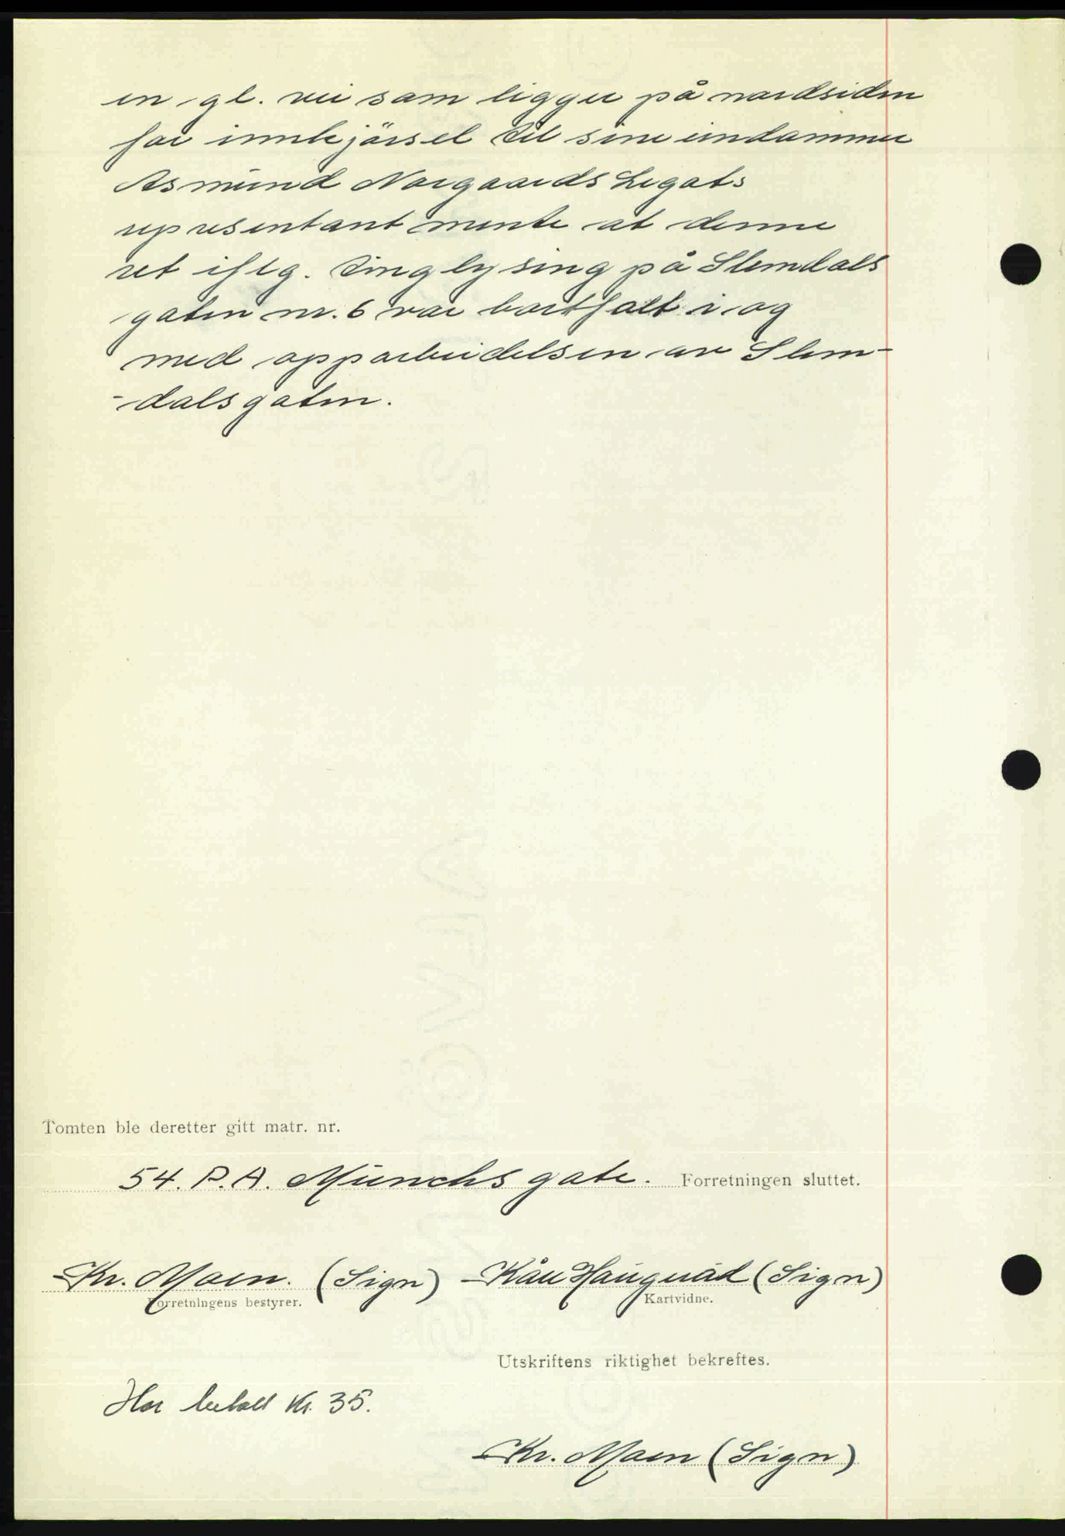 en gl. vei som ligger på nordsiden
for innkjörsel til sine eiendommer
Asmund Norgaards Legats
representant mente at denne
ret iflg. tinglysing på Slemdals
gaten nr. 6 var bortfalt i og
med opparbeidelsen av Slem-
-dalsgaten.
Tomten ble deretter gitt matr. nr.
54. P. A. Munchs gate. Forretningen sluttet.
Kr. Moen. (Sign) Kåre Haugerud (Sign)
Forretningens bestyrer. Kartvidne.
Utskriftens riktighet bekreftes.
Har betalt kr. 35.
Kr. Moen (Sign)